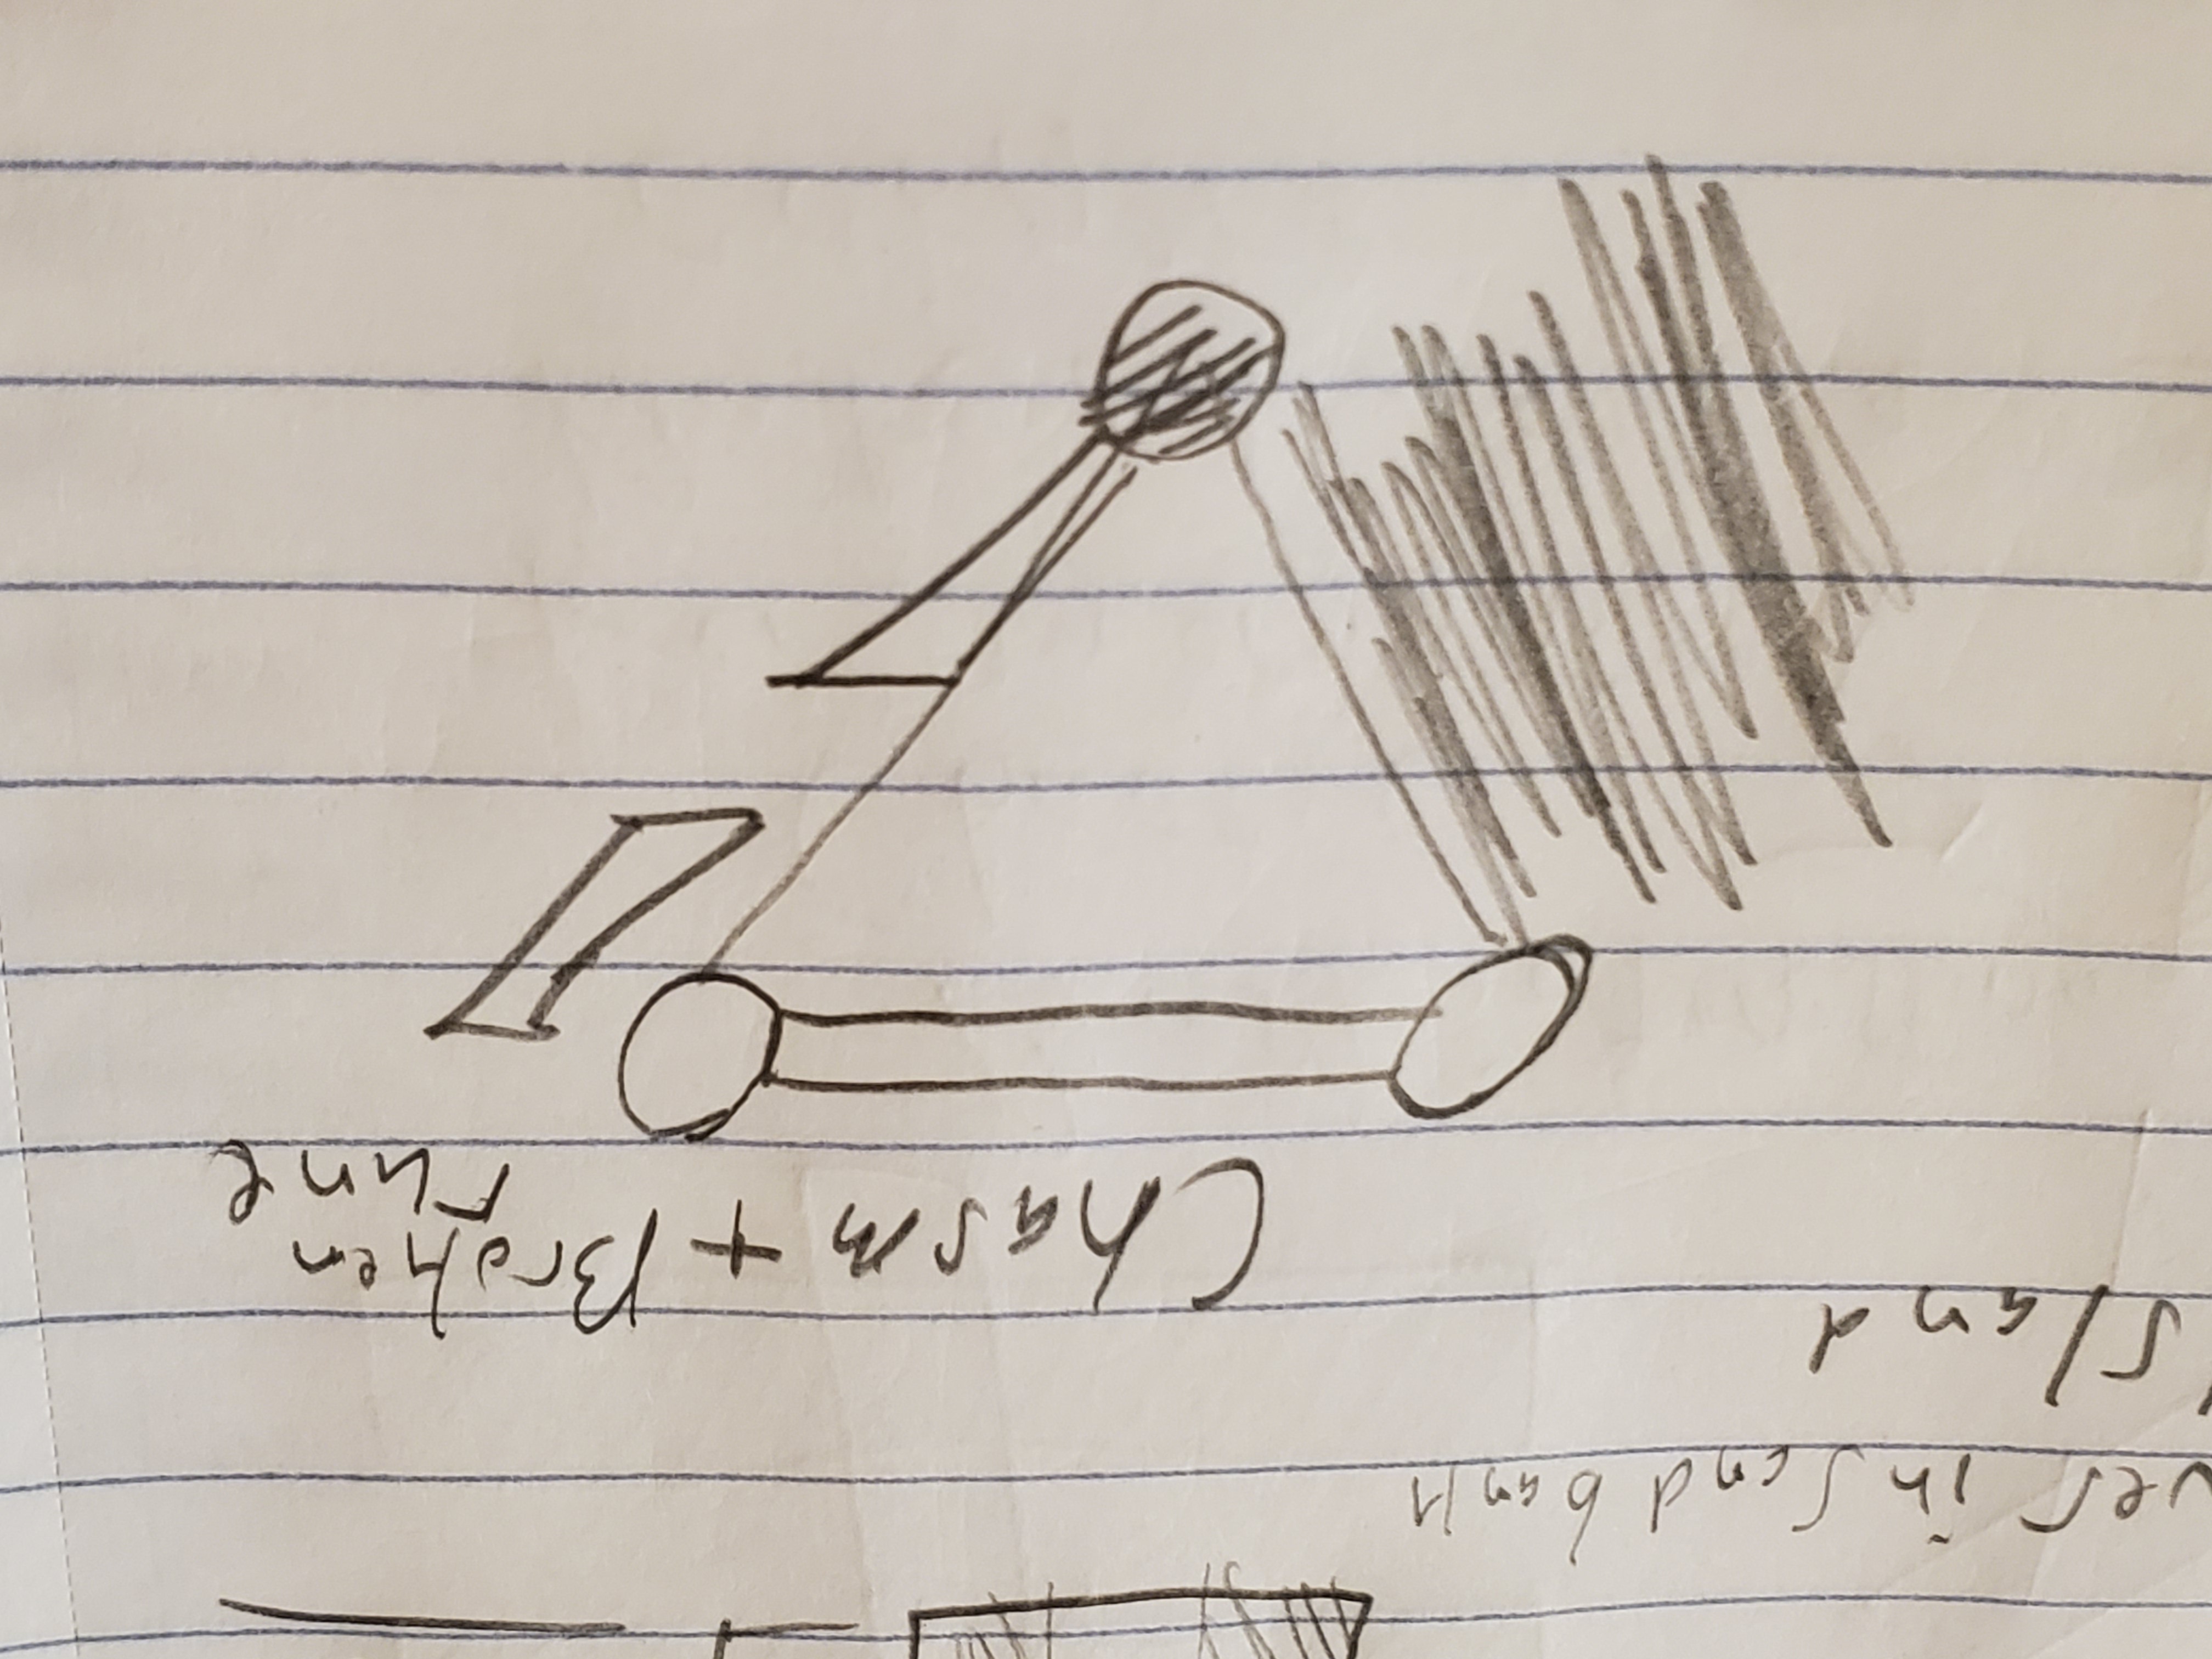 ver in sand bank
sland
Chasm + Broken
rune